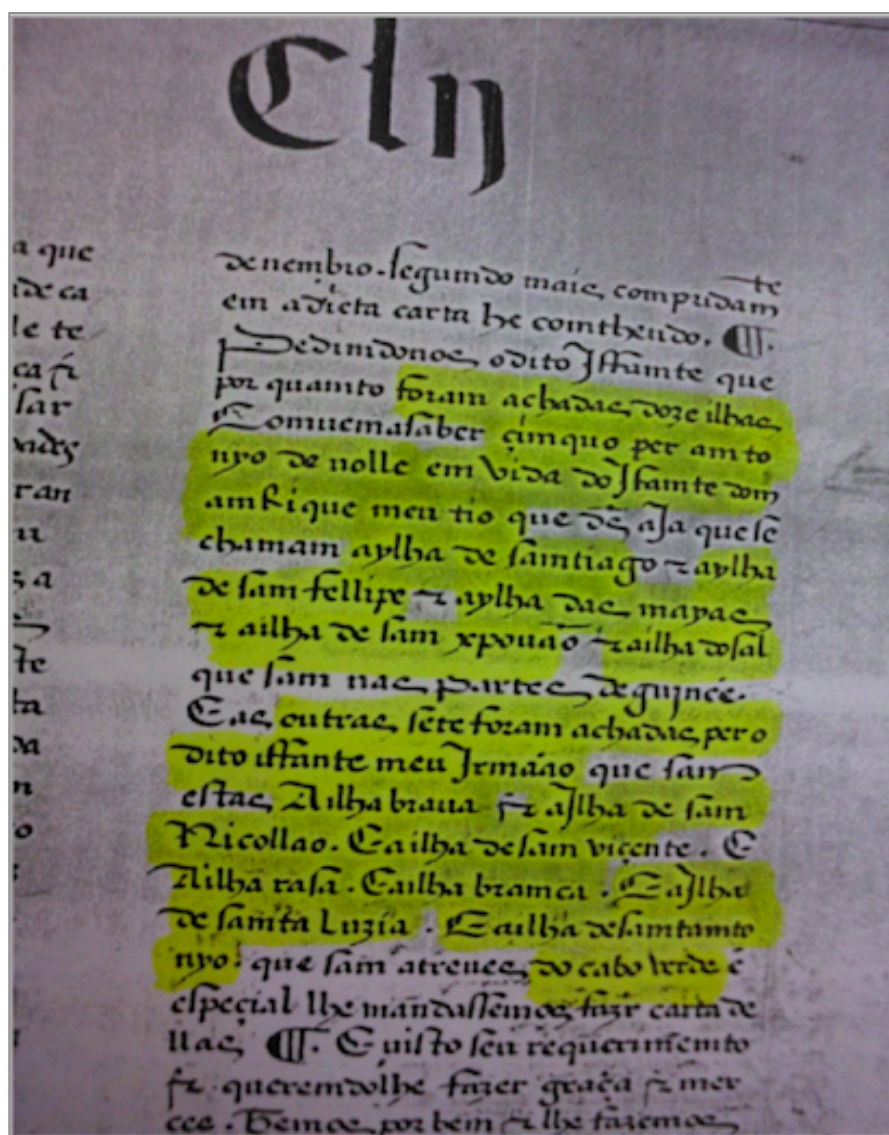 Clij
a que
de ca
le te
ca
sar
ran
a
te
ta
da
n
o
te
de nembro. segundo mais compridam
em adicta carta he comtheudo. ¶.
Pedimdonos odito Iffamte que
por quamto foram achadas doze ilhas
Comuemasaber çimquo per amto
nyo de nolle em vida do Ifamte dom
amRique meu tio que ds̃ aja que se
chamam aylha de samtiago ⁊ aylha
de sam fellipe ⁊ aylha das mayas
⁊ ailha de sam xpouão ⁊ ailha do sal
que sam nas partes de guinee.
E as outras sete foram achadas per o
dito iffante meu Irmãao que sam
estas, Ailha braua ⁊ aJlha de sam
Nicollao. E ailha de sam viçente. E
Ailha rasa. E ailha bramca. E aJlha
de samta Luzia. E ailha de samtamto
nyo. que sam atreues do cabo verde ẽ
espeçial lhe mandassemos fazer carta de
llas ¶. E uisto seu requerimemto
⁊ queremdolhe fazer graça ⁊ mer
cee. Temos por bem ⁊ lhe fazemos